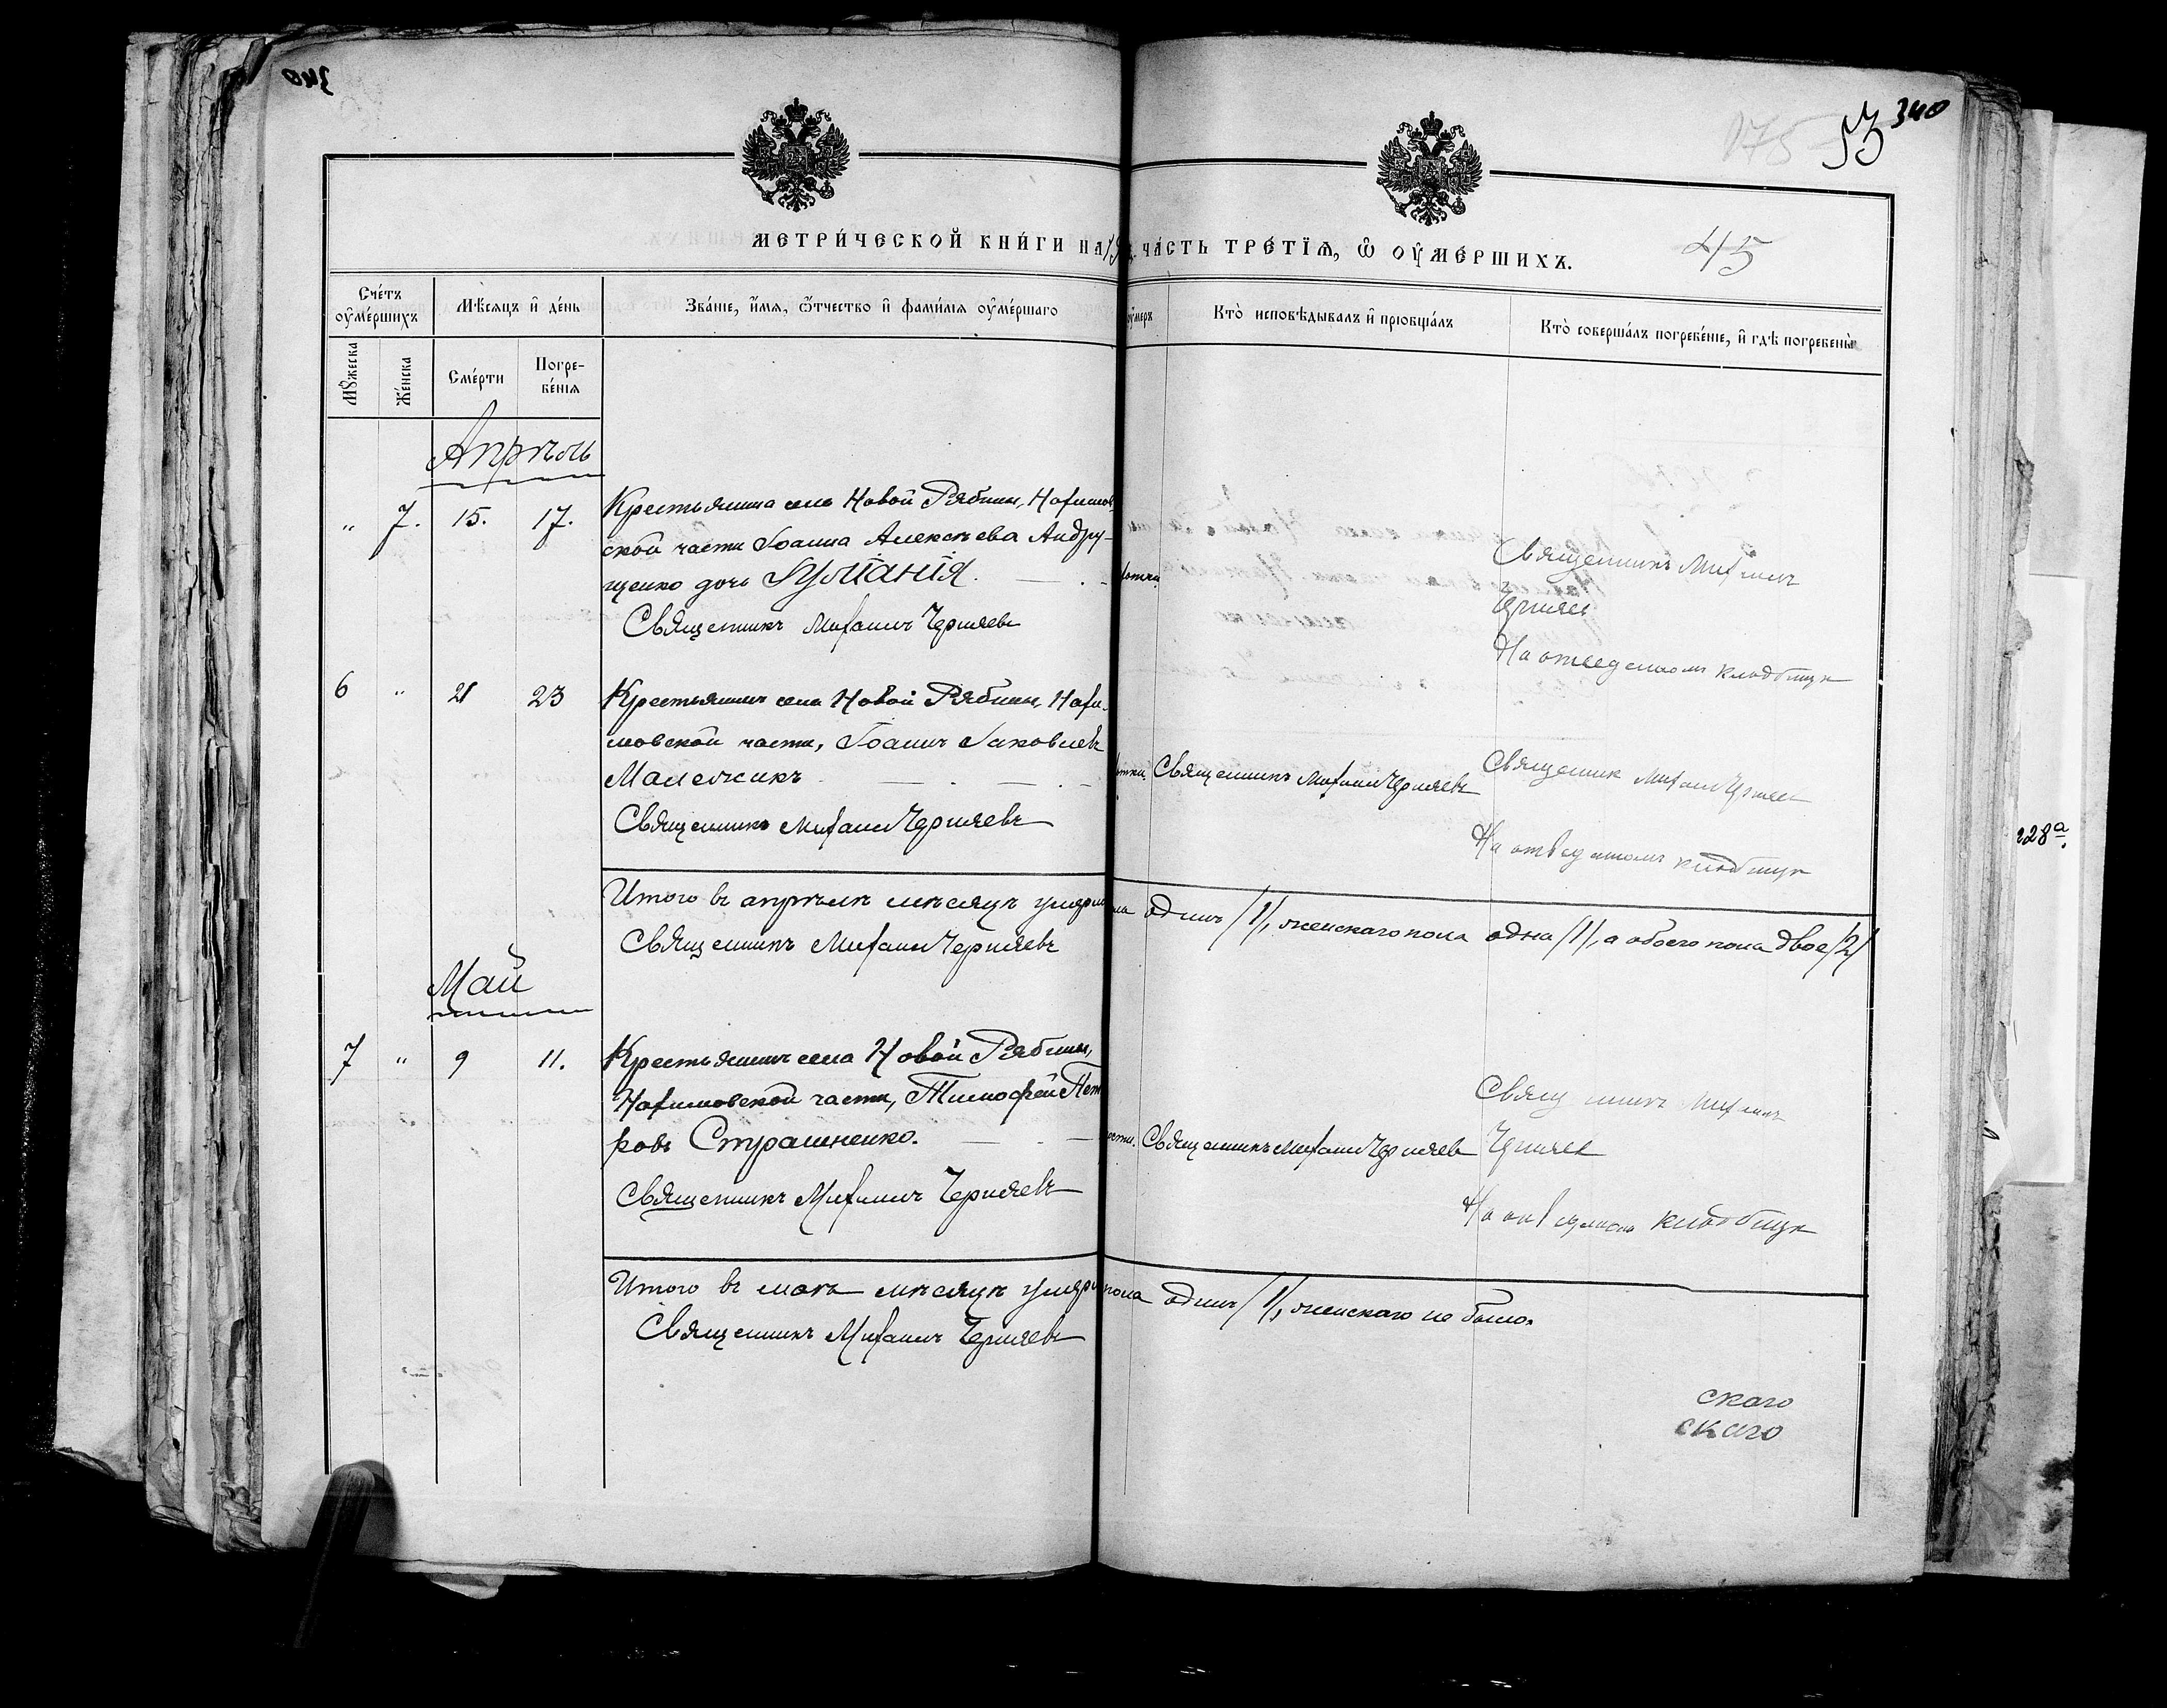 340
340
175 53
45
МЕТРИ́ЧЕСКОЙ КНИ́ГИ НА
ЧА́СТЬ ТРЕ́ТЇѦ, Ѿ ОУ҆МЕ́РШИХЪ.
Сче́тъ оу҆ме́ршихъ
Мѣ́сяцъ и҆ де́нь
Зва́нїе, и҆́мѧ, ѻ҆́тчество и҆ фами́лїѧ оу҆ме́ршаго
Кто̀ исповѣ́дывалъ и҆ прїобща́лъ
Кто̀ соверша́лъ погребе́нїе, и҆ гдѣ̀ погребены̀
Мꙋ́жеска
Же́нска
Сме́рти
Погре-
бе́нїѧ
Апрѣль
" 7. 15. 17.
Крестьянина села Новой Рябины, Нахимов
ской части Іоанна Алексѣева Андру-
щенко дочь Іуліанія.
Священникъ Михаилъ Черняевъ
Священникъ Михаилъ
Черняевъ
На отведенномъ кладбищѣ
6 " 21 23
Крестьянинъ села Новой Рябины, Нахи-
мовской части, Іоаннъ Іаковлевъ
Малежикъ
Священникъ Михаилъ Черняевъ
Священникъ Михаилъ Черняевъ
Священникъ Михаилъ Черняевъ
На отведенномъ кладбищѣ
Итого въ апрѣлѣ мѣсяцѣ умерло
одинъ /1/, женскаго пола одна /1/, а обоего пола двое /2/
Священникъ Михаилъ Черняевъ
Май
7 " 9 11.
Крестьянинъ села Новой Рябины,
Нахимовской части, Тимофей Пет
ровъ Страшненко.
Священникъ Михаилъ Черняевъ
Священникъ Михаилъ Черняевъ
Священникъ Михаилъ
Черняевъ
На отведенномъ кладбищѣ
Итого въ маѣ мѣсяцѣ умерло
пола одинъ /1/, женскаго не было.
Священникъ Михаилъ Черняевъ
скаго
скаго
228а.